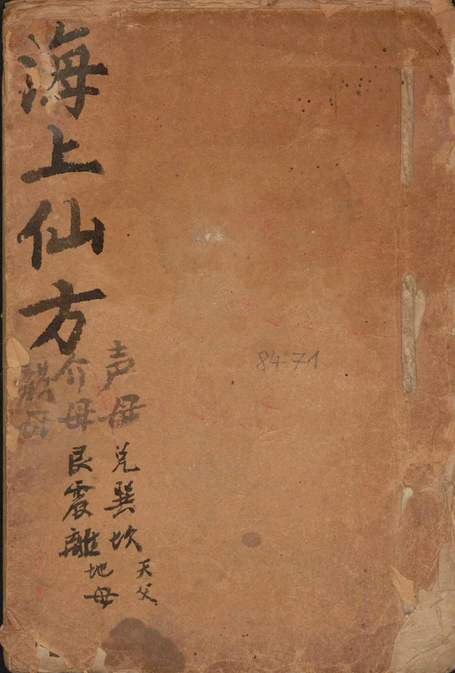 海上仙方
声母
介母
韵母
兑巽坎
天父
艮震離
地母
8471